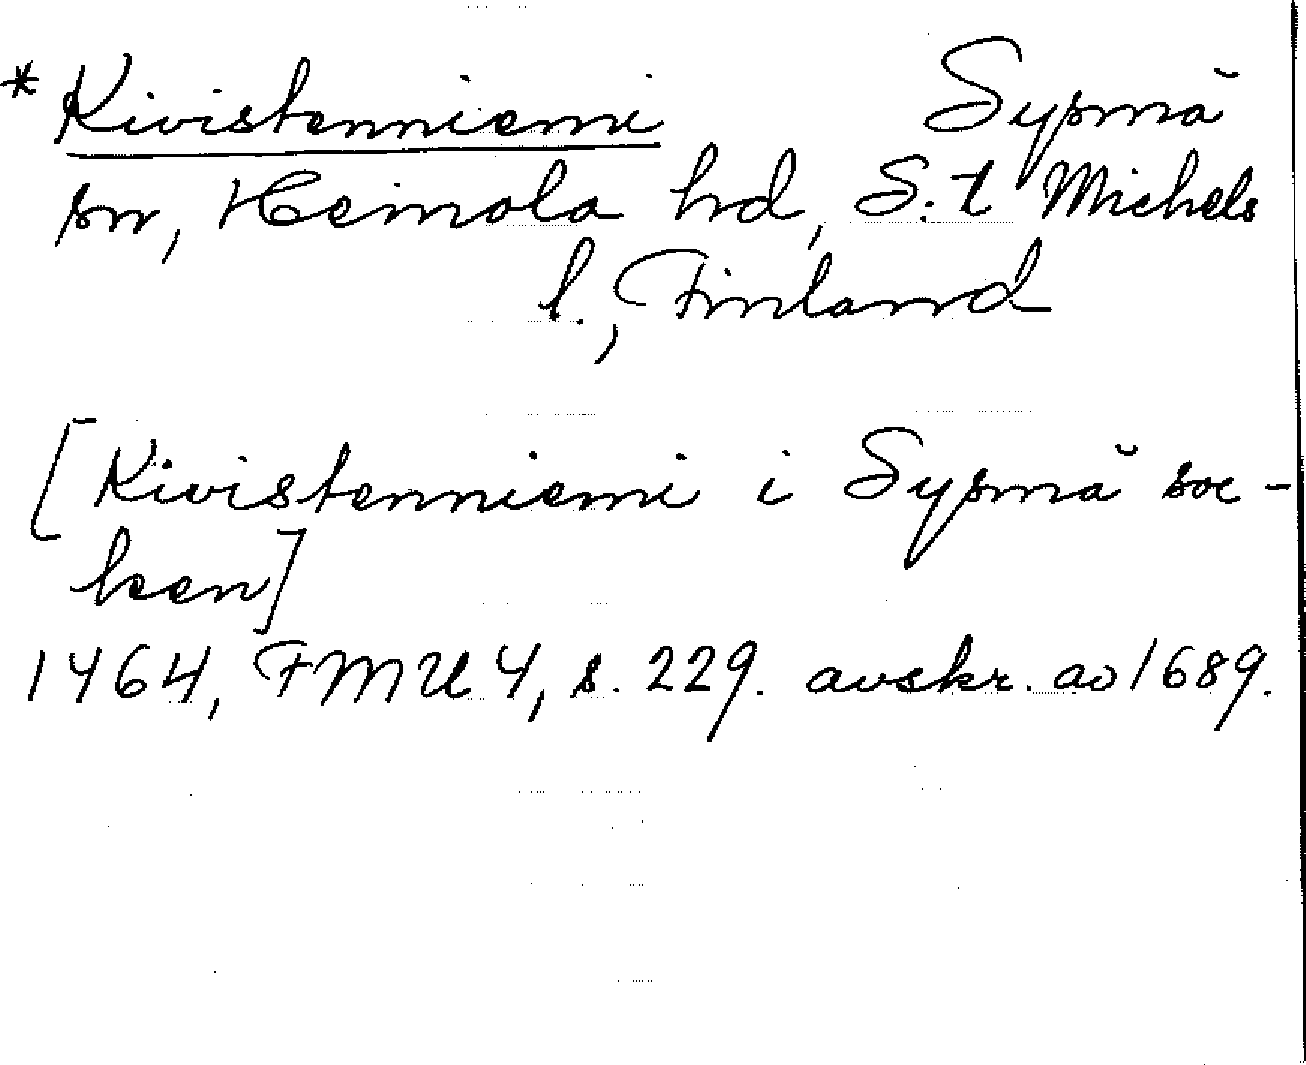 * Kivistenniemi Sysmä
sn, Heinola hd, S:t Michels
l., Finland
[Kivistenniemi i Sysmä soc-
ken]
1464, FMU 4, s. 229. avskr. av 1689.